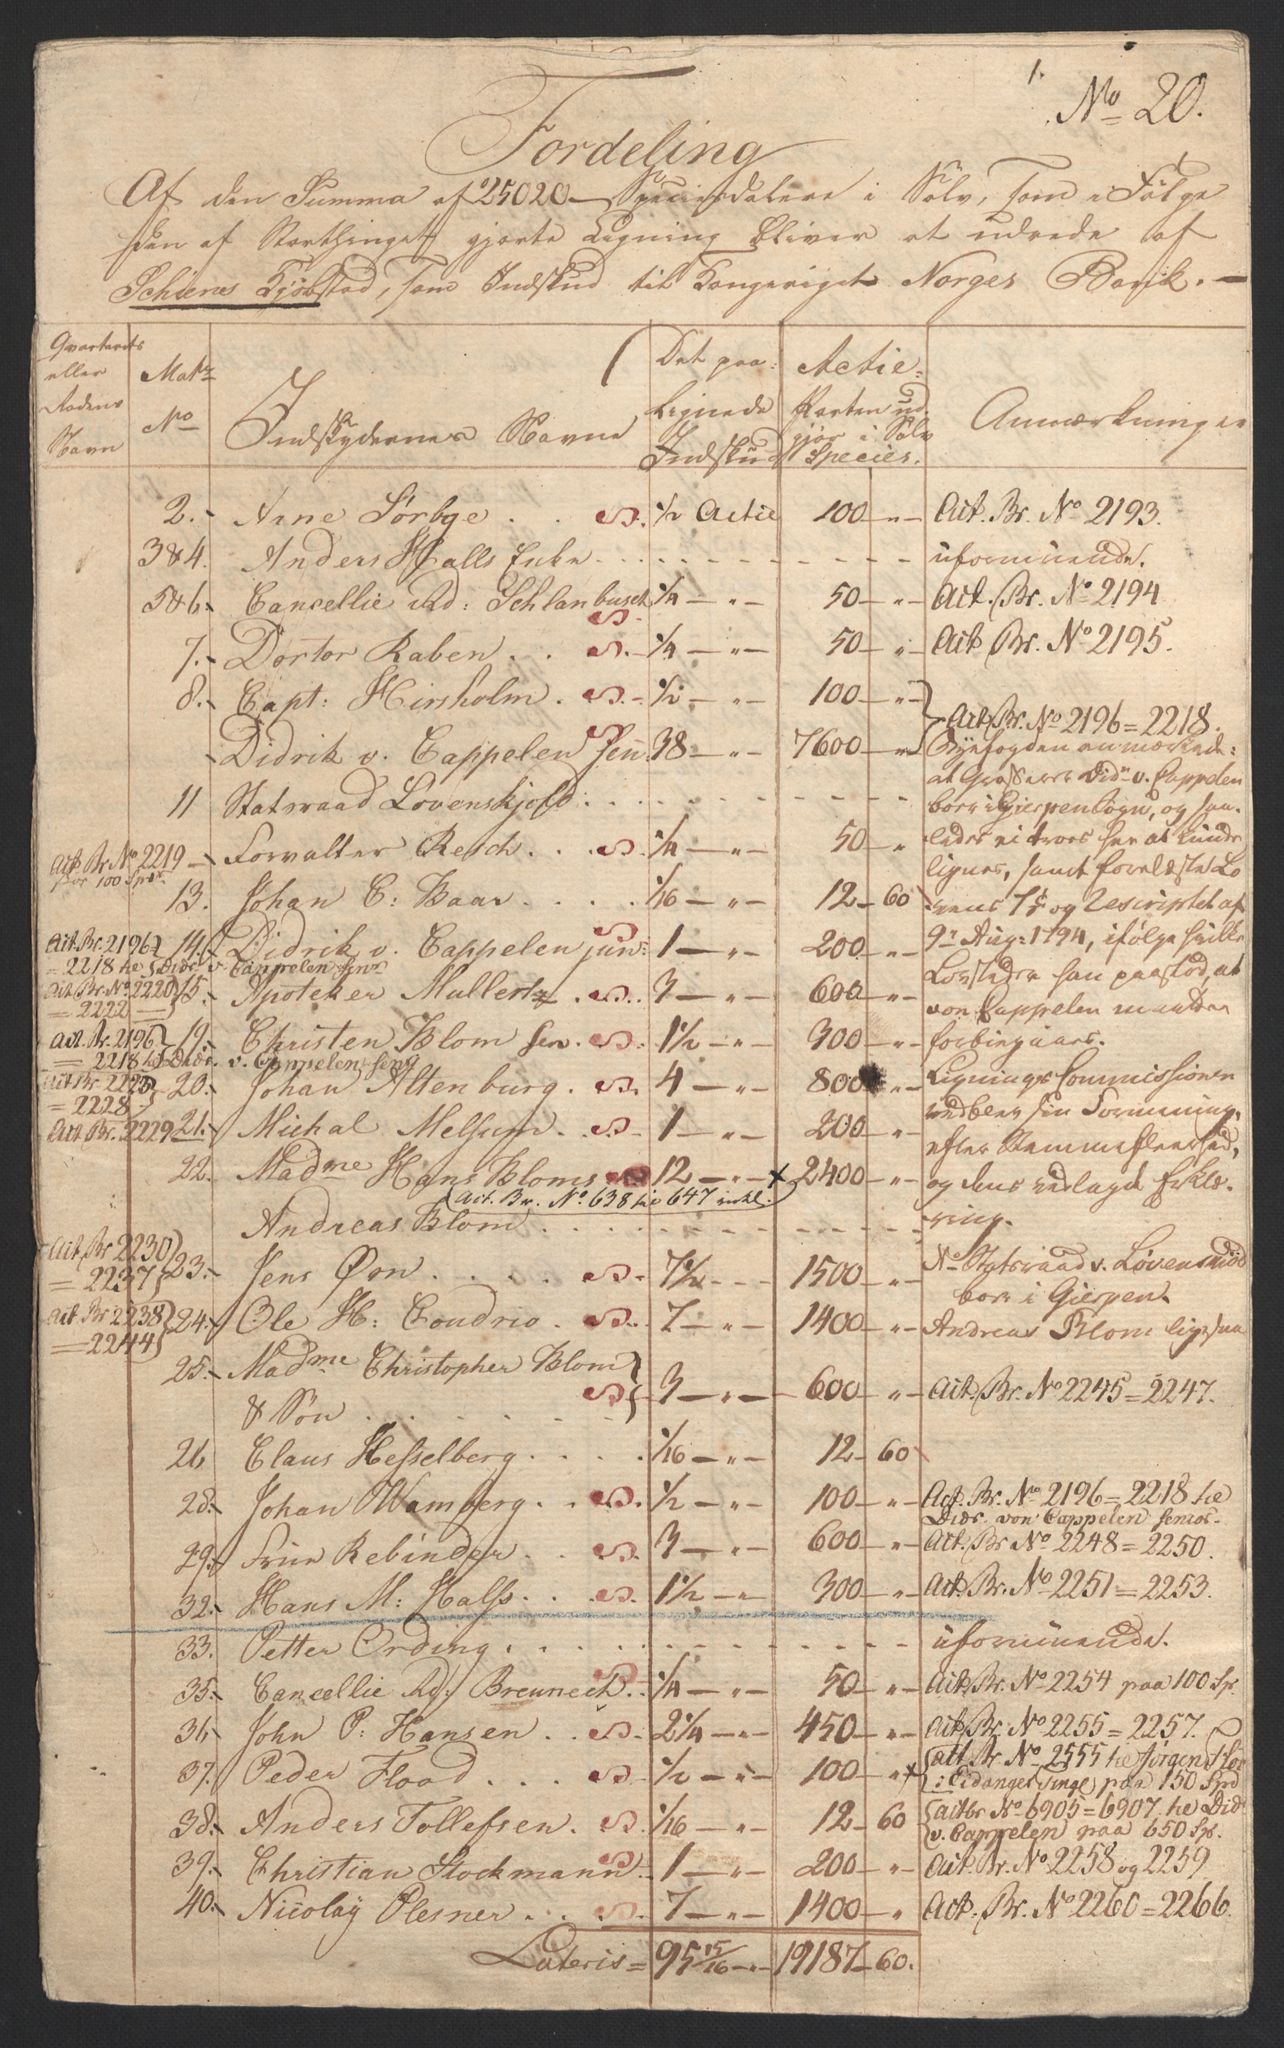 1.
No 20.
Fordeling
Af den Summa af 25020 Speciesdalere i Sølv, som i Følge
den af Storthinget gjorte Ligning bliver at udrede af
Schiens Kjøbstad, som Indskud til Kongeriget Norges Bank.
Qvarterets eller Rodens Navn | Matr No | Indskydernes Navne | Det paalignede Indskud | Actie-Parten udgjør i Sølv Species. | Anmærkninger
2. Arne Sørbye . . S. 1/2 Actie 100 — „ — Act. Br. No 2193.
3 & 4. Anders Halls Enke uformuende.
5 & 6. Cancellie Rd: Schlanbusch S. 1/4 — „ — 50 — „ — Act. Br. No 2194
7. Doctor Raben . . S. 1/4 — „ — 50 — „ — Act. Br. No 2195.
8. Capt: Hirsholm . S. 1/2 — „ — 100 — „ —
} Act. Br. No 2196 = 2218.
Didrik v. Cappelen Sen: 38 — „ — 7600 — „ — Byefogden anmærkede:
at Grosserer Did. v. Cappelen
11 Statsraad Løvenskjold boer i Gierpen Sogn, og saa-
Act. Br. No 2219 for 100 Spd. Forvalter Resch . . S. 1/4 — „ — 50 „ ledes ei troes her at kunde
lignes, samt forelæste Lo
13. Johan C: Baar 1/16 — „ — 12 — 60 vens og Rescriptet af
Act. Br. 2196 = 2218 he Didr. v. Cappelen senr 14. Didrik v. Cappelen jun: 1 — „ — 200 — „ — 9de Aug: 1794, ifølge hvilke
Act. Br. No 2220 = 2222 15. Apoteker Mullertz . S. 3 — „ — 600 — „ — Lovsteder han paastod, at
von Cappelen maatte
Act. Br. 2196 = 2218 he Didr. v. Cappelen senr 19. Christen Blom sen . S. 1 1/2 — „ — 300 — „ — forbigaaes.
Act. Br. 2223 = 2228 20. Johan Altenburg . S. 4 — „ — 800 — „ — Lignings Commissionen
Act. Br. 2229 21. Michal Melsum . S. 1 — „ — 200 — „ — efter Stemmefleerhed,
22. Madme Hans Bloms 12 — „ — x 2400 — „ — og dens vedlagde Erklæ-
(Act. Br. No 638 til 647 inkl.) ring.
Andreas Blom
Act. Br. 2230 = 2237 23. Jens Ørn S. 7 1/2 — „ — 1500 — „ — Statsraad v. Løvenskiold
boer i Gierpen.
Act. Br. 2238 = 2244 24. Ole H: Coudrio . S. 7 — „ — 1400 — „ — Andreas Blom
25. Madme Christopher Blom }
& Søn S. } 3 — „ — 600 „ — Act. Br. No 2245 = 2247.
26 Claus Hesselberg 1/16 — „ — 12 — 60
28. Johan Wamberg . . S. 1/2 — „ — 100 — „ — Act. Br. No 2196 = 2218 he
Didr. von Cappelen senior.
29. Frue Rebinder . . S. 3 — „ — 600 — „ — Act. Br No 2248 = 2250.
32. Hans M: Halss . . S. 1 1/2 — „ — 300 — „ — Act. Br. No 2251 = 2253.
33. Petter Ording uformuende.
35. Cancellie Rd: Breunech . S. 1/4 — „ — 50 — „ — Act. Br. No 2254 paa 100 Sp.
36 John P: Hansen . S. 2 1/4 — „ — 450 — „ — Act. Br. No 2255 = 2257.
37. Peder Flood . . . S. 1/2 — „ — 100 — „ x { Act. Br No 2555 he Jørgen Flor
i Eidanger Tinge paa 150 Spd
38. Anders Tollefsen . S. 1/16 — „ — 12 — 60 { Actbr No 6905 = 6907 he Did
v. Cappelen paa 650 Sp.
39. Christian Stockmann S. 1 — „ — 200 — „ — Act. Br. No 2258 og 2259
40. Nicolaÿ Plesner . . . S. 7 — „ — 1400 — „ Act. Br. No 2260 = 2266.
Lateris = 95 15/16 — „ — 19187 — 60.